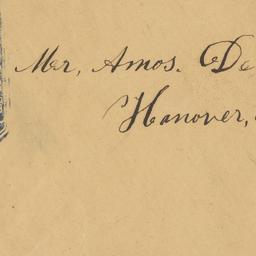 Mr, Amos. De
Hanover,